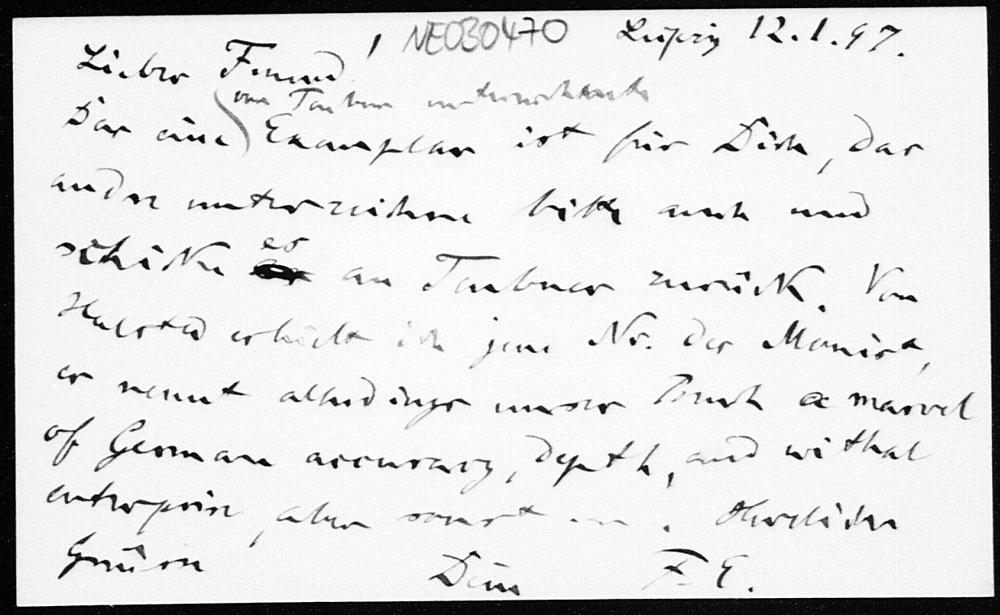 NE030470 Leipzig 12.1.97.
Lieber Freund!
von Teubner unterzeichnete
Das eine Exemplar ist für Dich, das
andre unterzeichne bitte auch und
schicke es an Teubner zurück. Von
Halsted erhielt ich jene Nr. des Monist,
er nennt allerdings unser Buch a marvel
of German accuracy, depth, and withal
enterprise, aber sonst Herzliche
Grüsse Dein F. E.